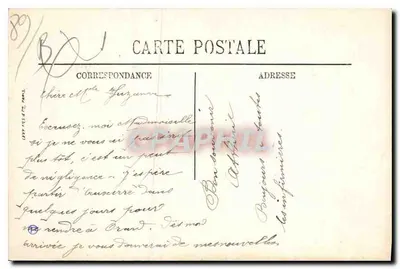 89/
B
CARTE POSTALE
CORRESPONDANCE
ADRESSE
Chère Mlle Suzanne
Excusez-moi Mademoiselle
si je ne vous ai pas écrit
plus tôt, c'est un peut
de négligence. J'espère
partir d'Auxerre dans
quelques jours pour
me rendre à Oran. Dès mon
arrivée je vous donnerai de mes nouvelles.
Bon souvenir
Bonjours à toutes
les infirmières.
Delcampe